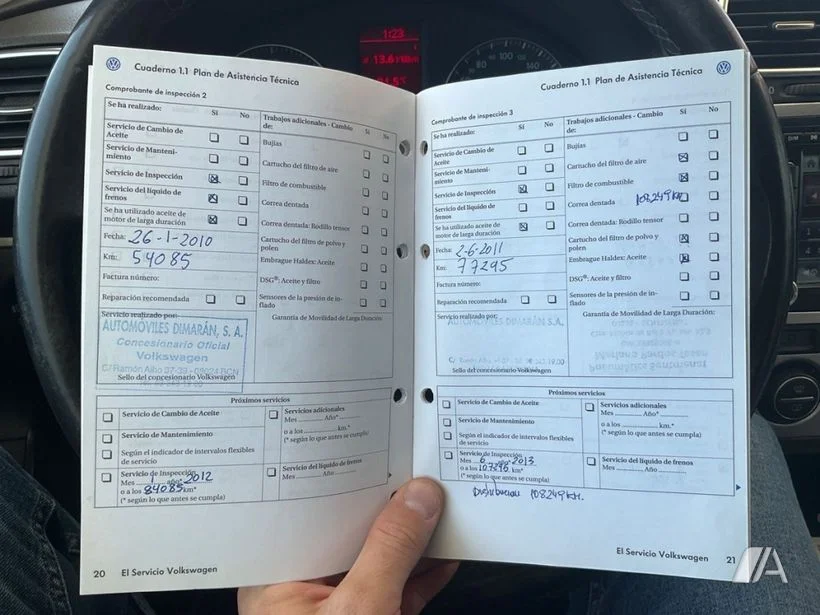 1:23
80 100 120
Cuaderno 1.1 Plan de Asistencia Técnica
Comprobante de inspección 2
Se ha realizado: Sí No
Servicio de Cambio de
Aceite
Servicio de Manteni-
miento
Servicio de Inspección
Servicio del líquido de
frenos
Se ha utilizado aceite de
motor de larga duración
Fecha: 26-1-2010
Km: 54085
Factura número:
Reparación recomendada
Servicio realizado por:
AUTOMÓVILES DIMARÁN, S. A.
Concesionario Oficial
Volkswagen
Sello del concesionario Volkswagen
Trabajos adicionales - Cambio Sí No
de:
Bujías
Cartucho del filtro de aire
Filtro de combustible
Correa dentada
Correa dentada: Rodillo tensor
Cartucho del filtro de polvo y
polen
Embrague Haldex: Aceite
DSG®: Aceite y filtro
Sensores de la presión de in-
flado
Garantía de Movilidad de Larga Duración:
Próximos servicios
Servicio de Cambio de Aceite
Servicio de Mantenimiento
Según el indicador de intervalos flexibles
de servicio
Servicio de Inspección
Mes 1 año 2012
o a los 84085 km*
(* según lo que antes se cumpla)
Servicios adicionales
Mes Año*
o a los km.*
(* según lo que antes se cumpla)
Servicio del líquido de frenos
Mes Año
20 El Servicio Volkswagen
Cuaderno 1.1 Plan de Asistencia Técnica
Comprobante de inspección 3
Se ha realizado: Sí No
Servicio de Cambio de
Aceite
Servicio de Manteni-
miento
Servicio de Inspección
Servicio del líquido de
frenos
Se ha utilizado aceite de
motor de larga duración
Fecha: 2-6-2011
Km: 77295
Factura número:
Reparación recomendada
Servicio realizado por:
AUTOMÓVILES DIMARÁN S.A.
Sello del concesionario Volkswagen
Trabajos adicionales - Cambio Sí No
de:
Bujías
Cartucho del filtro de aire
Filtro de combustible
Correa dentada 108249 km
Correa dentada: Rodillo tensor
Cartucho del filtro de polvo y
polen
Embrague Haldex: Aceite
DSG®: Aceite y filtro
Sensores de la presión de in-
flado
Garantía de Movilidad de Larga Duración:
Próximos servicios
Servicio de Cambio de Aceite
Servicio de Mantenimiento
Según el indicador de intervalos flexibles
de servicio
Servicio de Inspección
Mes 6 año 2013
o a los 107295 km*
(* según lo que antes se cumpla)
Servicios adicionales
Mes Año*
o a los km.*
(* según lo que antes se cumpla)
Servicio del líquido de frenos
Mes Año
108249 KM.
El Servicio Volkswagen 21